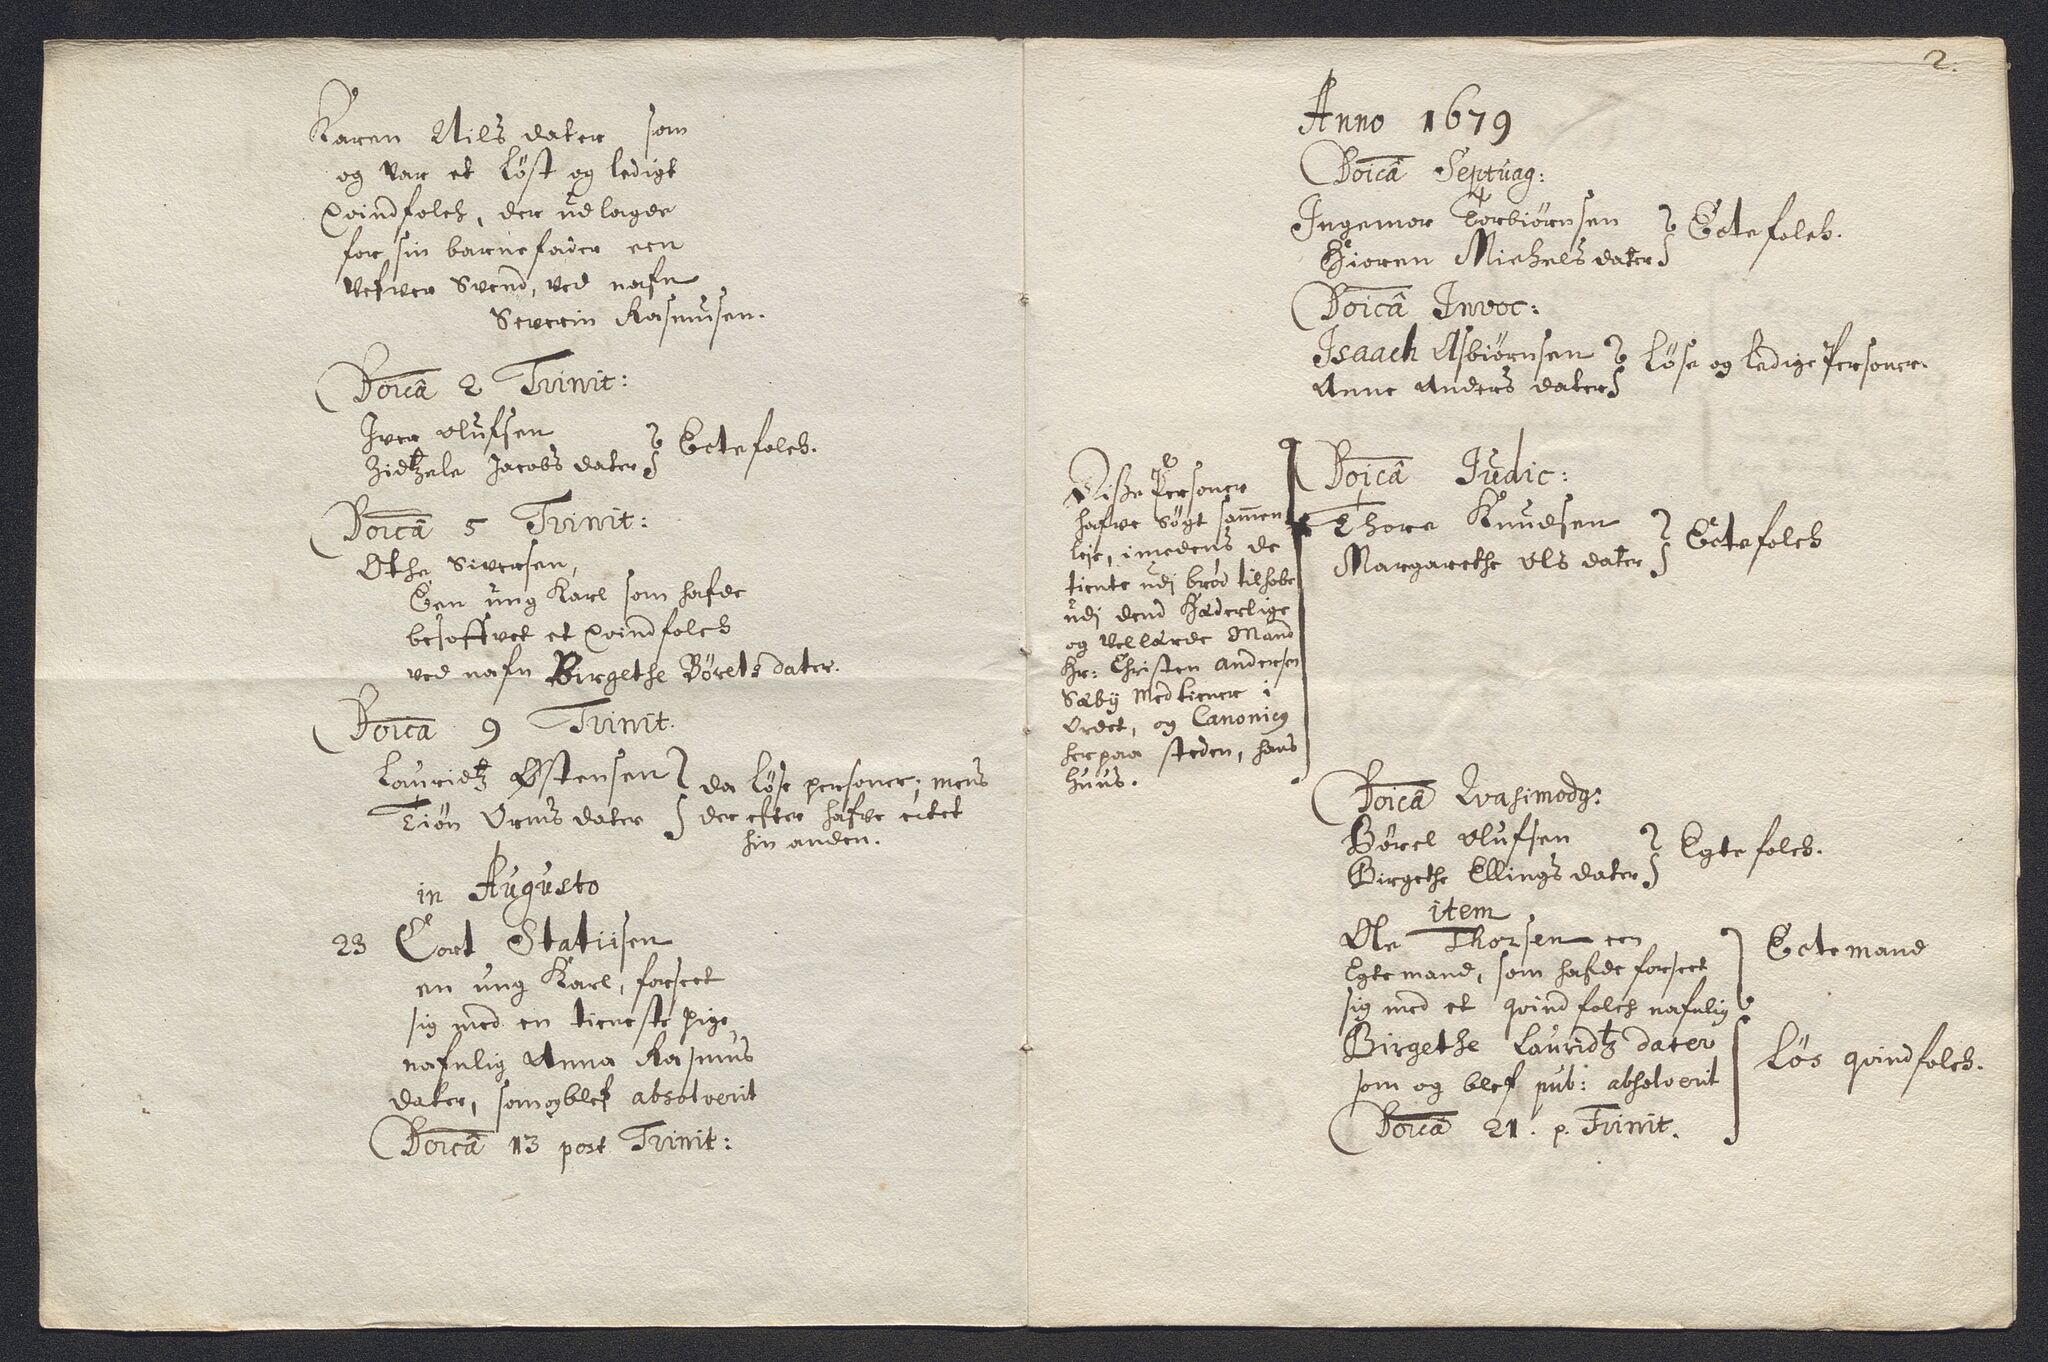 Karen Nils dater som
og var et løst og ledigt
Qvindfolch, der udlagde
for sin barnefader een
vefver Svend, ved nafn
Severin Rasmusen.
Doica 2 Trinit:
Iver Olufsen
Zidtzele Jacobs dater } Ectefolch.
Doica 5 Trinit:
Othe Siversen,
Een ung Karl som hafde
besoffvet et Qvindfolch
ved nafn Birgethe Børels dater.
Doica 9 Trinit.
Lauridtz Østensen } da løse personer; mens
Tiøn Orms dater } der efter hafve ectet
hin anden.
in Augusto
23 Cort Statiisen
en ung Karl, forseet
sig med en tieneste pige
nafnlig Anna Rasmus
dater, som og blef absolverit
Doica 13 post Trinit:
2.
Anno 1679
Doica Septuag:
Ingemor Torbiørnsen
Hioren Michels dater } Ectefolch.
Doica Invoc:
Isaach Asbiørnsen } Løse og ledige Personer.
Anne Anders dater
Disse Personer
hafve søgt sammen
leje, imedens de
tiente udi brød tilhobe
udj dend Hæderlige
og Vellærde Mand
Hr: Christen Andersen
Sæby Medtiener i
Ordet, og Canonicus
her paa steden, hans
huus.
Doica Judic:
Thore Knudsen
Margarethe Ols dater } Ectefolch
Doica Qvasimodg:
Børel Olufsen
Birgethe Ellings dater } Egtefolch.
item
Ole Thorsen een
Egtemand, som hafde forseet } Ectemand
sig med et qvindfolch nafnlig
Birgethe Lauridtz dater
som og blef pub: absolverit } Løs qvindfolch.
Doica 21. p. Trinit.